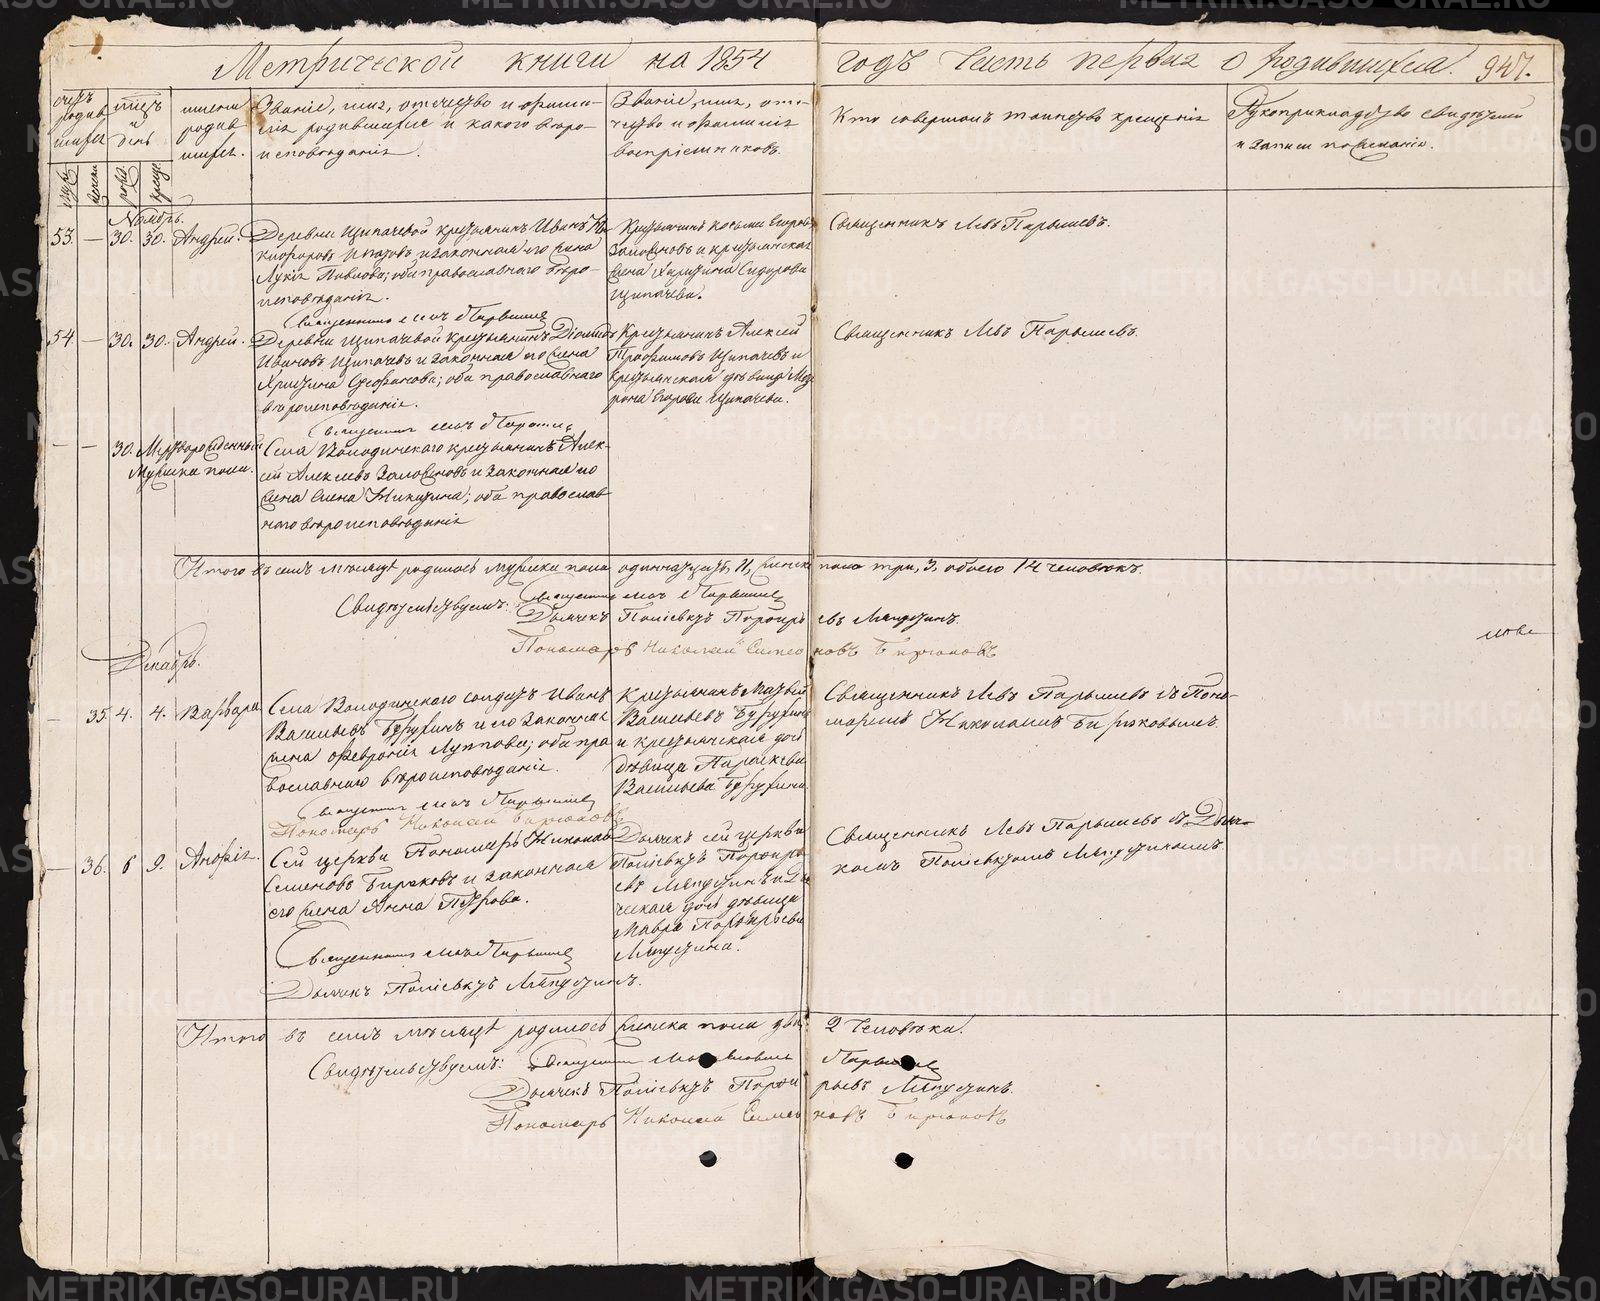 Метрической книги на 1854 годъ Часть первая о родившихся. 947.
счетъ родив шихся
мѣсяцъ и день
имена родив шихся.
Званіе, имя, отчество и фами-
лія родившихся и какого вѣро-
исповѣданія.
Званіе, имя, отче-
чество и фамилія
воспріемниковъ.
Кто совершалъ таинство крещенія
Рукоприкладство свидѣтелей
и записи по желанію.
Ноябрь.
53. — 30. 30. Андрей.
Деревни Щипачевой крестьянинъ Иванъ Ни-
кифоровъ и законная его жена
Лукія Павлова; оба православнаго вѣро-
исповѣданія.
Крестьянинъ Козьма Егоровъ
и крестьянская
жена Харитина Сидорова
Щипачева.
Священникъ Левъ Парышевъ.
54. — 30. 30. Андрей.
Деревни Щипачевой крестьянинъ Діомидъ
Ивановъ Щипачевъ и законная его жена
Христина; оба православнаго
вѣроисповѣданія.
Крестьянинъ Алексей
Трофимовъ Щипачевъ и
крестьянская дѣвица Мат
рона Егорова Щипачева.
Священникъ Левъ Парышевъ.
— — 30. Мертворожденный
Мужска пола.
Села Володинскаго крестьянинъ Алек-
сей Алексѣевъ и законная его
жена Елена Никитина; оба православ
наго вѣроисповѣданія
Итого въ семъ мѣсяцѣ родилось мужска пола одиннатцать, 11, женска пола три, 3, обоего 14 человѣкъ.
Свидѣтельствуемъ: Священникъ Левъ Парышевъ
Дьячекъ Поліевктъ Порфирь евъ Ляпустинъ.
Пономарь Николай Симео новъ Бирюковъ
Декабрь.
— 35. 4. 4. Варвара
Села Володинскаго солдатъ Иванъ
Васильевъ и его законная
жена Февронія Луппова; оба пра
вославнаго вѣроисповѣданія.
Священникъ Левъ Парышевъ
Пономарь Николай Бирюковъ
Крестьянинъ Матвей
Васильевъ
и крестьянская дочь
дѣвица Параскева
Васильева
Священникъ Левъ Парышевъ съ Поно-
маремъ Николаемъ Бирюковымъ.
— 36. 6 9. Анфія.
Сей церкви Пономарь Николай
Семеновъ Бирюковъ и законная
его жена Анна Петрова.
Священникъ Левъ Парышевъ
Дьячекъ Поліевктъ Ляпустинъ.
Дьячекъ сей церкви
Поліевктъ Порфирь
евъ Ляпустинъ и Дья
ческая дочь дѣвица
Мавра Порфирьева
Ляпустина.
Священникъ Левъ Парышевъ съ Дьяч-
комъ Поліевктомъ Ляпустинымъ.
Итого въ семъ мѣсяцѣ родилось женска пола два; 2 Человѣка.
Свидѣтельствуемъ: Священникъ Парышевъ
Дьячекъ Поліевктъ Порфи рьевъ Ляпустинъ.
Пономарь Николай Симео новъ Бирюковъ
METRIKI.GASO-URAL.RU